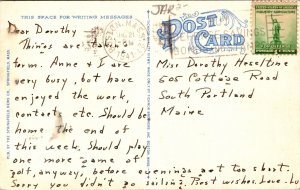 THIS SPACE FOR WRITING MESSAGES
POST
CARD
Dear Dorothy -
Things are taking
form. Anne & I are
very busy, but have
enjoyed the work,
contacts etc. Should be
home the end of
this week. Should play
one more game of
golf, anyway, before evenings get too short.
Sorry you didn't go sailing. Best wishes. Love
Miss Dorothy Heseltine
605 Cottage Road
South Portland
Maine